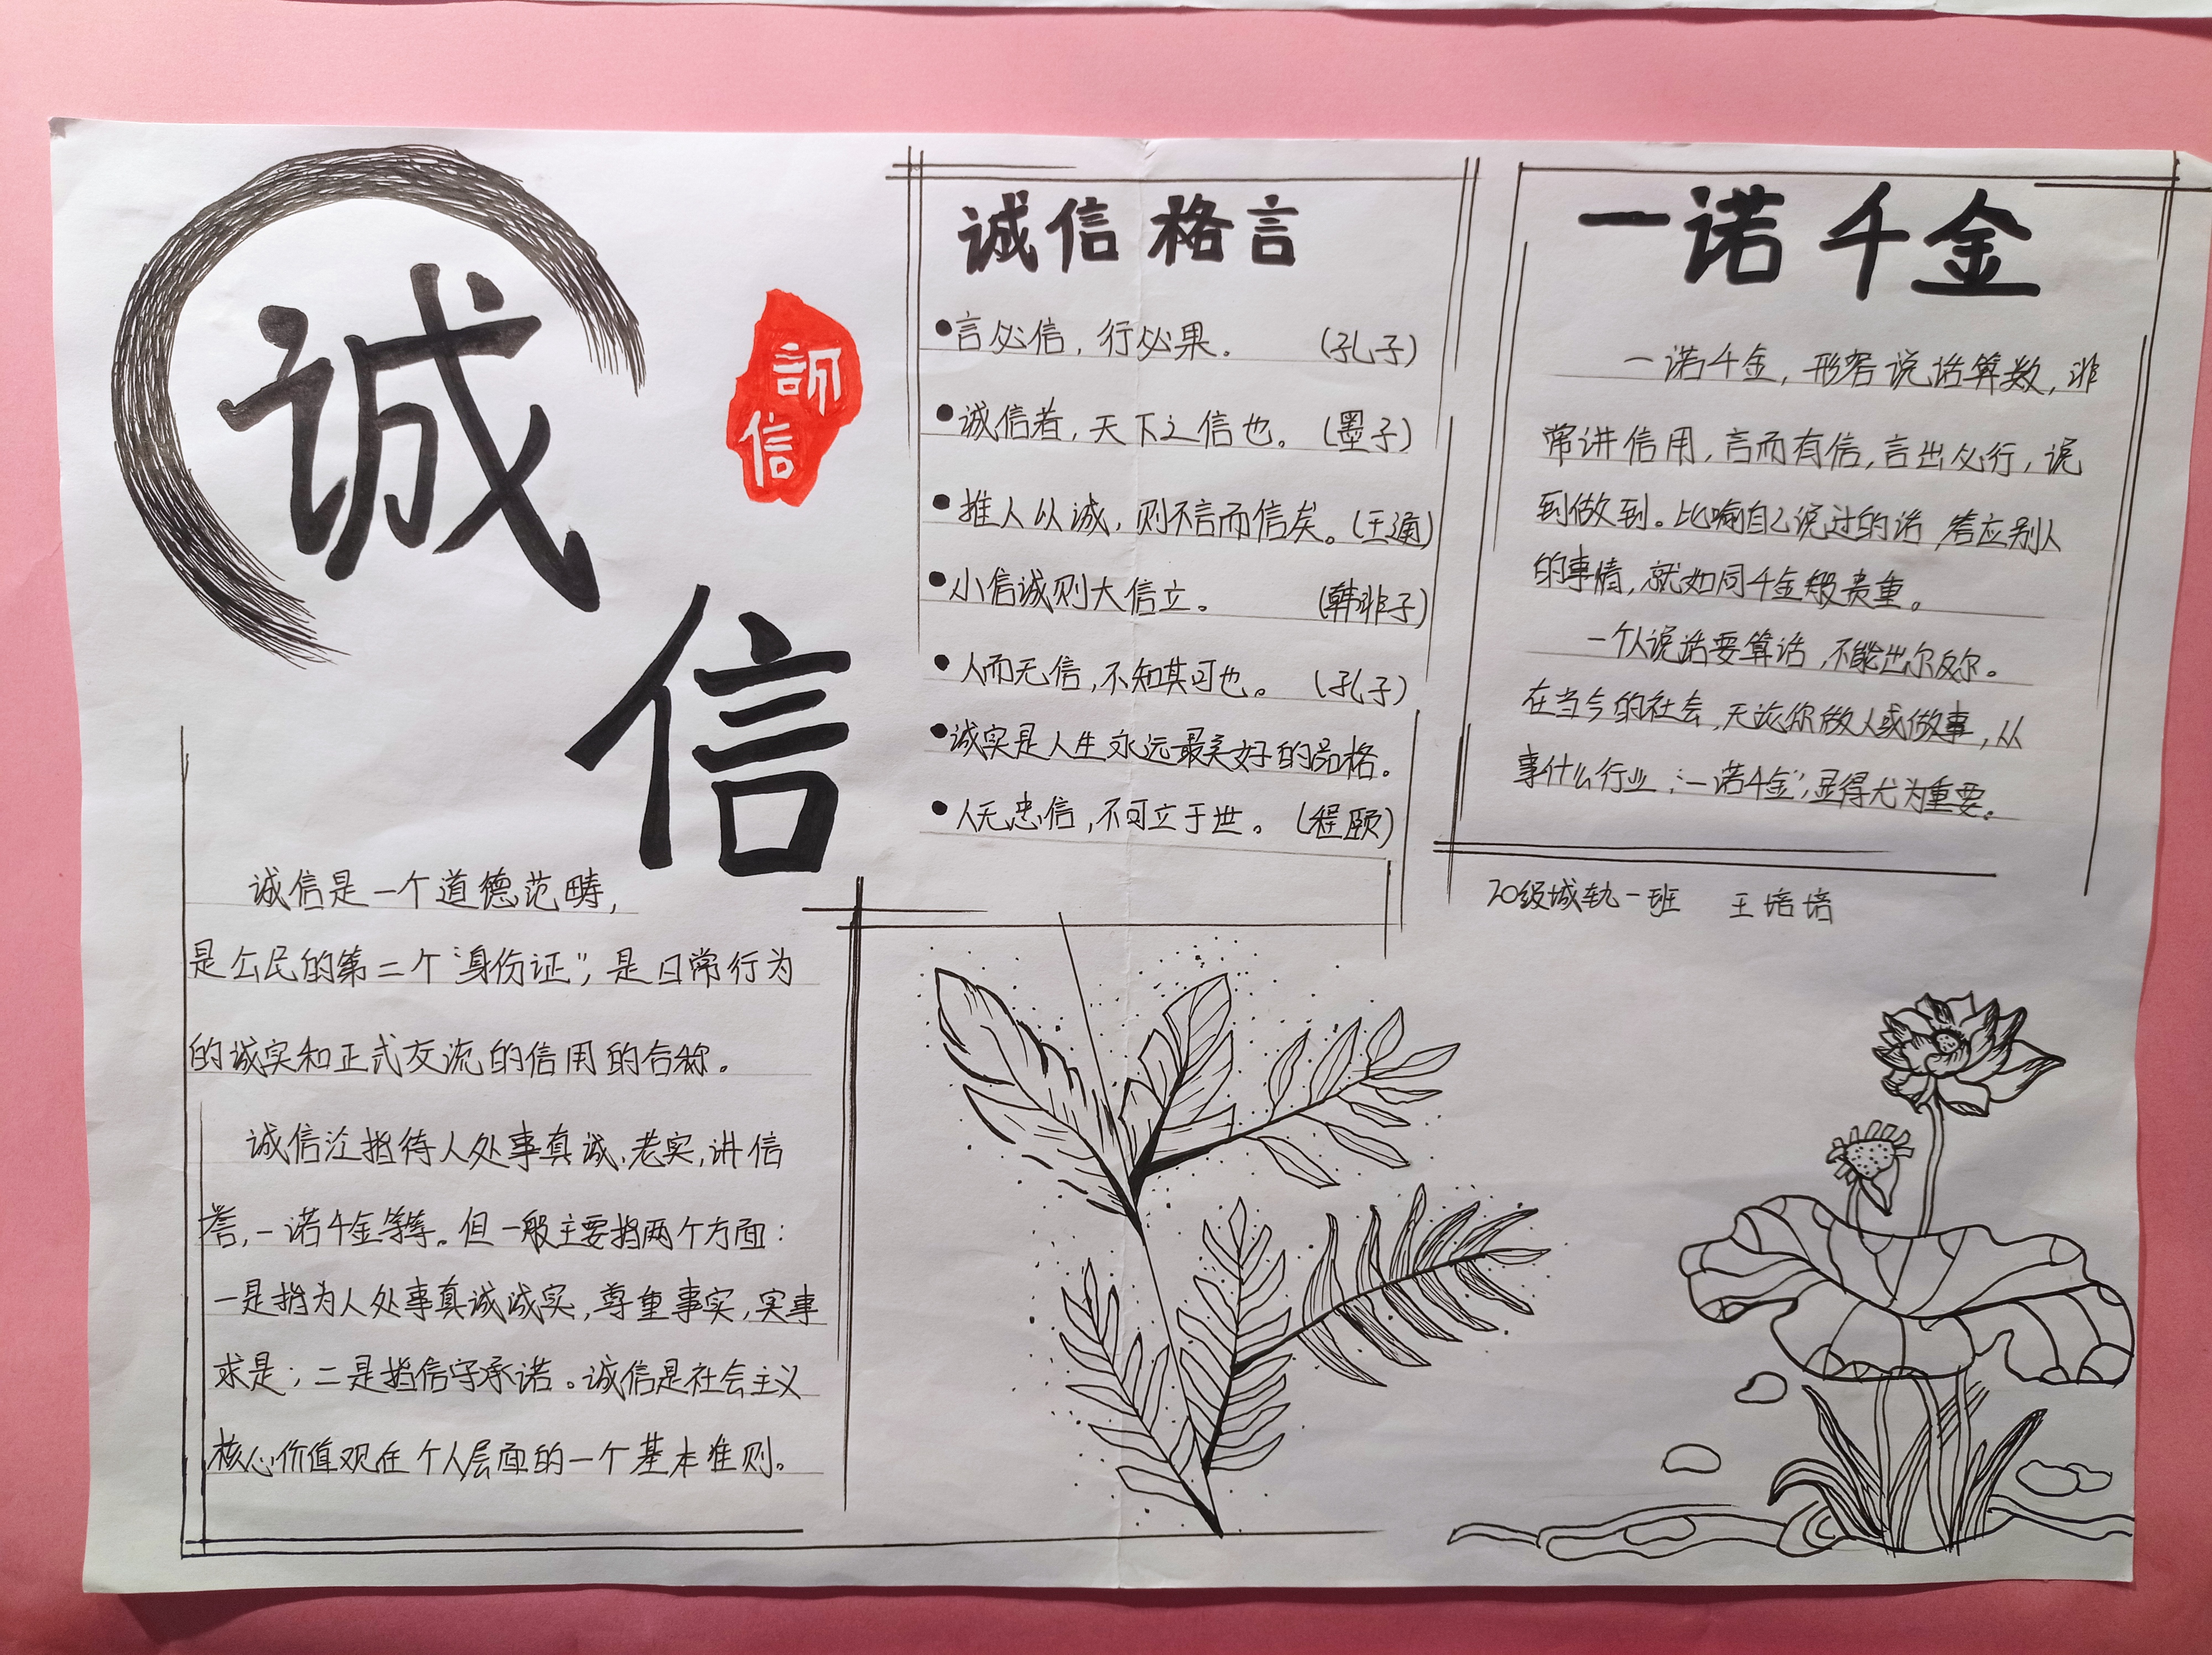 诚
信
信
诚信是一个道德范畴,
是公民的第二个“身份证”,是日常行为
的诚实和正式交流的信用的合称。
诚信泛指待人处事真诚、老实,讲信
誉,一诺千金等等。但一般主要指两个方面:
一是指为人处事真诚诚实,尊重事实,实事
求是;二是指信守承诺。诚信是社会主义
核心价值观在个人层面的一个基本准则。
诚信格言
●言必信,行必果。 (孔子)
●诚信者,天下之信也。(墨子)
●推人以诚,则不言而信矣。(王通)
●小信诚则大信立。 (韩非子)
●人而无信,不知其可也。 (孔子)
●诚实是人生永远最美好的品格。
●人无忠信,不可立于世。(程颐)
一诺千金
一诺千金,形容说话算数,非
常讲信用,言而有信,言出必行,说
到做到。比喻自己说过的话 答应别人
的事情,就如同千金般贵重。
一个人说话要算话,不能出尔反尔。
在当今的社会,无论你做人或做事,从
事什么行业,“一诺千金”,显得尤为重要。
20级城轨一班 王培培